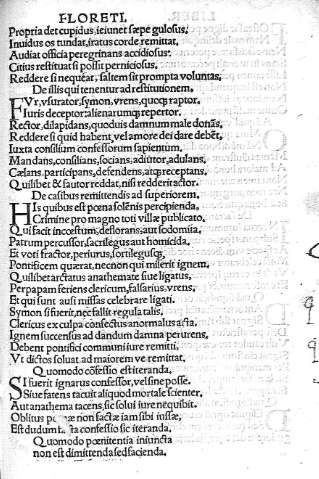 FLORETI.
Propria det cupidus, ieiunet sæpe gulosus,
Inuidus os tundat, iratus corde remittat,
Audiat officia peregrinans accidiosus:
Citius restituat si possit perniciosus,
Reddere si nequeat, saltem sit prompta voluntas,
De illis qui tenentur ad restitutionem.
FVr, vsurator, symon, vrens, quoq; raptor,
Iuris deceptor, alienarumq; repertor.
Rector, dilapidans, quoduis damnum male donãs,
Reddere si quid habent, vel amore dei dare debẽt,
Iuxta consilium confessorum sapientum,
Mandans, consilians, socians, adiutor, adulans,
Cælans, participans, defendens, atq; receptans,
Quilibet & fautor reddat, nisi redderit actor.
De casibus remittendis ad superiorem.
HIs quibus est pœna solẽnis percipienda,
Crimine pro magno toti villæ publicato,
Qui facit incœstum, deflorans, aut sodomita,
Patrum percussor, sacrilegus aut homicida,
Et voti fractor, periurus, sortilegusq;
Pontificem quærat, necnon qui miserit ignem.
Quilibet arctatus anathemate siue ligatus,
Per papam feriens clericum, falsarius, vrens,
Et qui sunt ausi missas celebrare ligati.
Symon si fuerit, nec fallit regula talis,
Clericus ex culpa confectus anormalus acta,
Ignem successus ad dandum damna perurens,
Debent pontifici communi iure remitti.
Vt dictos soluat ad maiorem ve remittat,
Quomodo cõfessio est iteranda.
SI fuerit ignarus confessor, vel sine posse.
Siue fatens tacuit aliquod mortale scienter,
Aut anathema tacens, sic solui iure nequibit.
Oblitus non factæ iam sibi iussæ,
Est dudum confessio sic iteranda.
Quomodo pœnitentia iniuncta
non est dimittenda sed facienda.